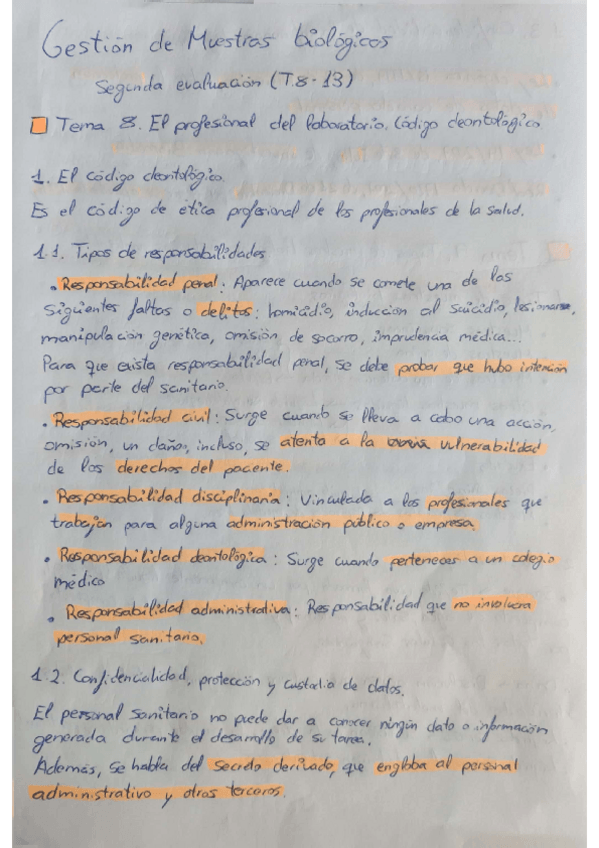 Gestión de Muestras biológicas
Segunda evaluación (T.8-13)
Tema 8. El profesional del laboratorio. Código deontológico.
1. El código deontológico.
Es el código de ética profesional de los profesionales de la salud.
1.1. Tipos de responsabilidades.
• Responsabilidad penal: Aparece cuando se comete una de las
siguientes faltas o delitos: homicidio, induccion al suicidio, lesionarse,
manipulación genética, omisión de socorro, imprudencia médica...
Para que exista responsabilidad penal, se debe probar que hubo intención
por parte del sanitario.
• Responsabilidad civil: Surge cuando se lleva a cabo una acción,
omisión, un daño, incluso, se atenta a la vulnerabilidad
de los derechos del paciente.
• Responsabilidad disciplinaria: Vinculada a los profesionales que
trabajan para alguna administración público o empresa.
• Responsabilidad deontológica: Surge cuando perteneces a un colegio
médico
• Responsabilidad administrativa: Responsabilidad que no involucra
personal sanitario.
1.2. Confidencialidad, protección y custodia de datos.
El personal sanitario no puede dar a conocer ningún dato o información
generada durante el desarrollo de su tarea.
Además, se habla del secreto derivado, que engloba al personal
administrativo y otros terceros.